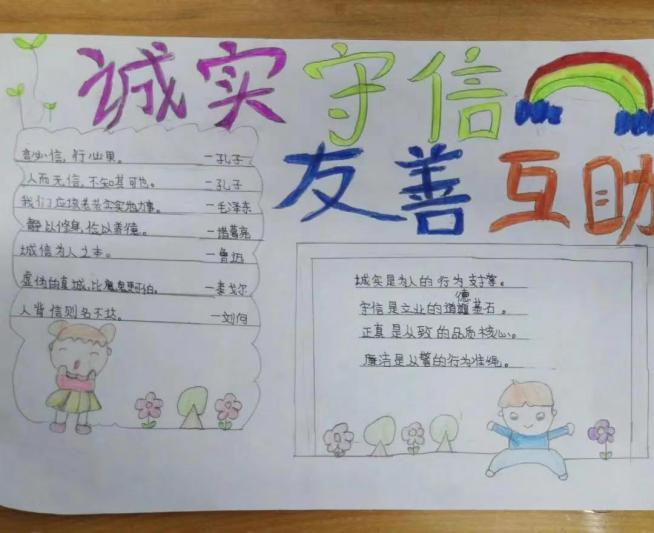 诚实守信
友善互助
言必信，行必果。 —孔子
人而无信，不知其可也。 —孔子
我们应该老老实实地办事。 —毛泽东
静以修身，俭以养德。 —诸葛亮
诚信为人之本。 —鲁迅
虚伪的真诚，比魔鬼更可怕。 —泰戈尔
人背信则名不达。 —刘向
诚实是为人的行为支撑。
守信是立业的道德基石。
正真是从致的品质核心。
廉洁是从警的行为准绳。